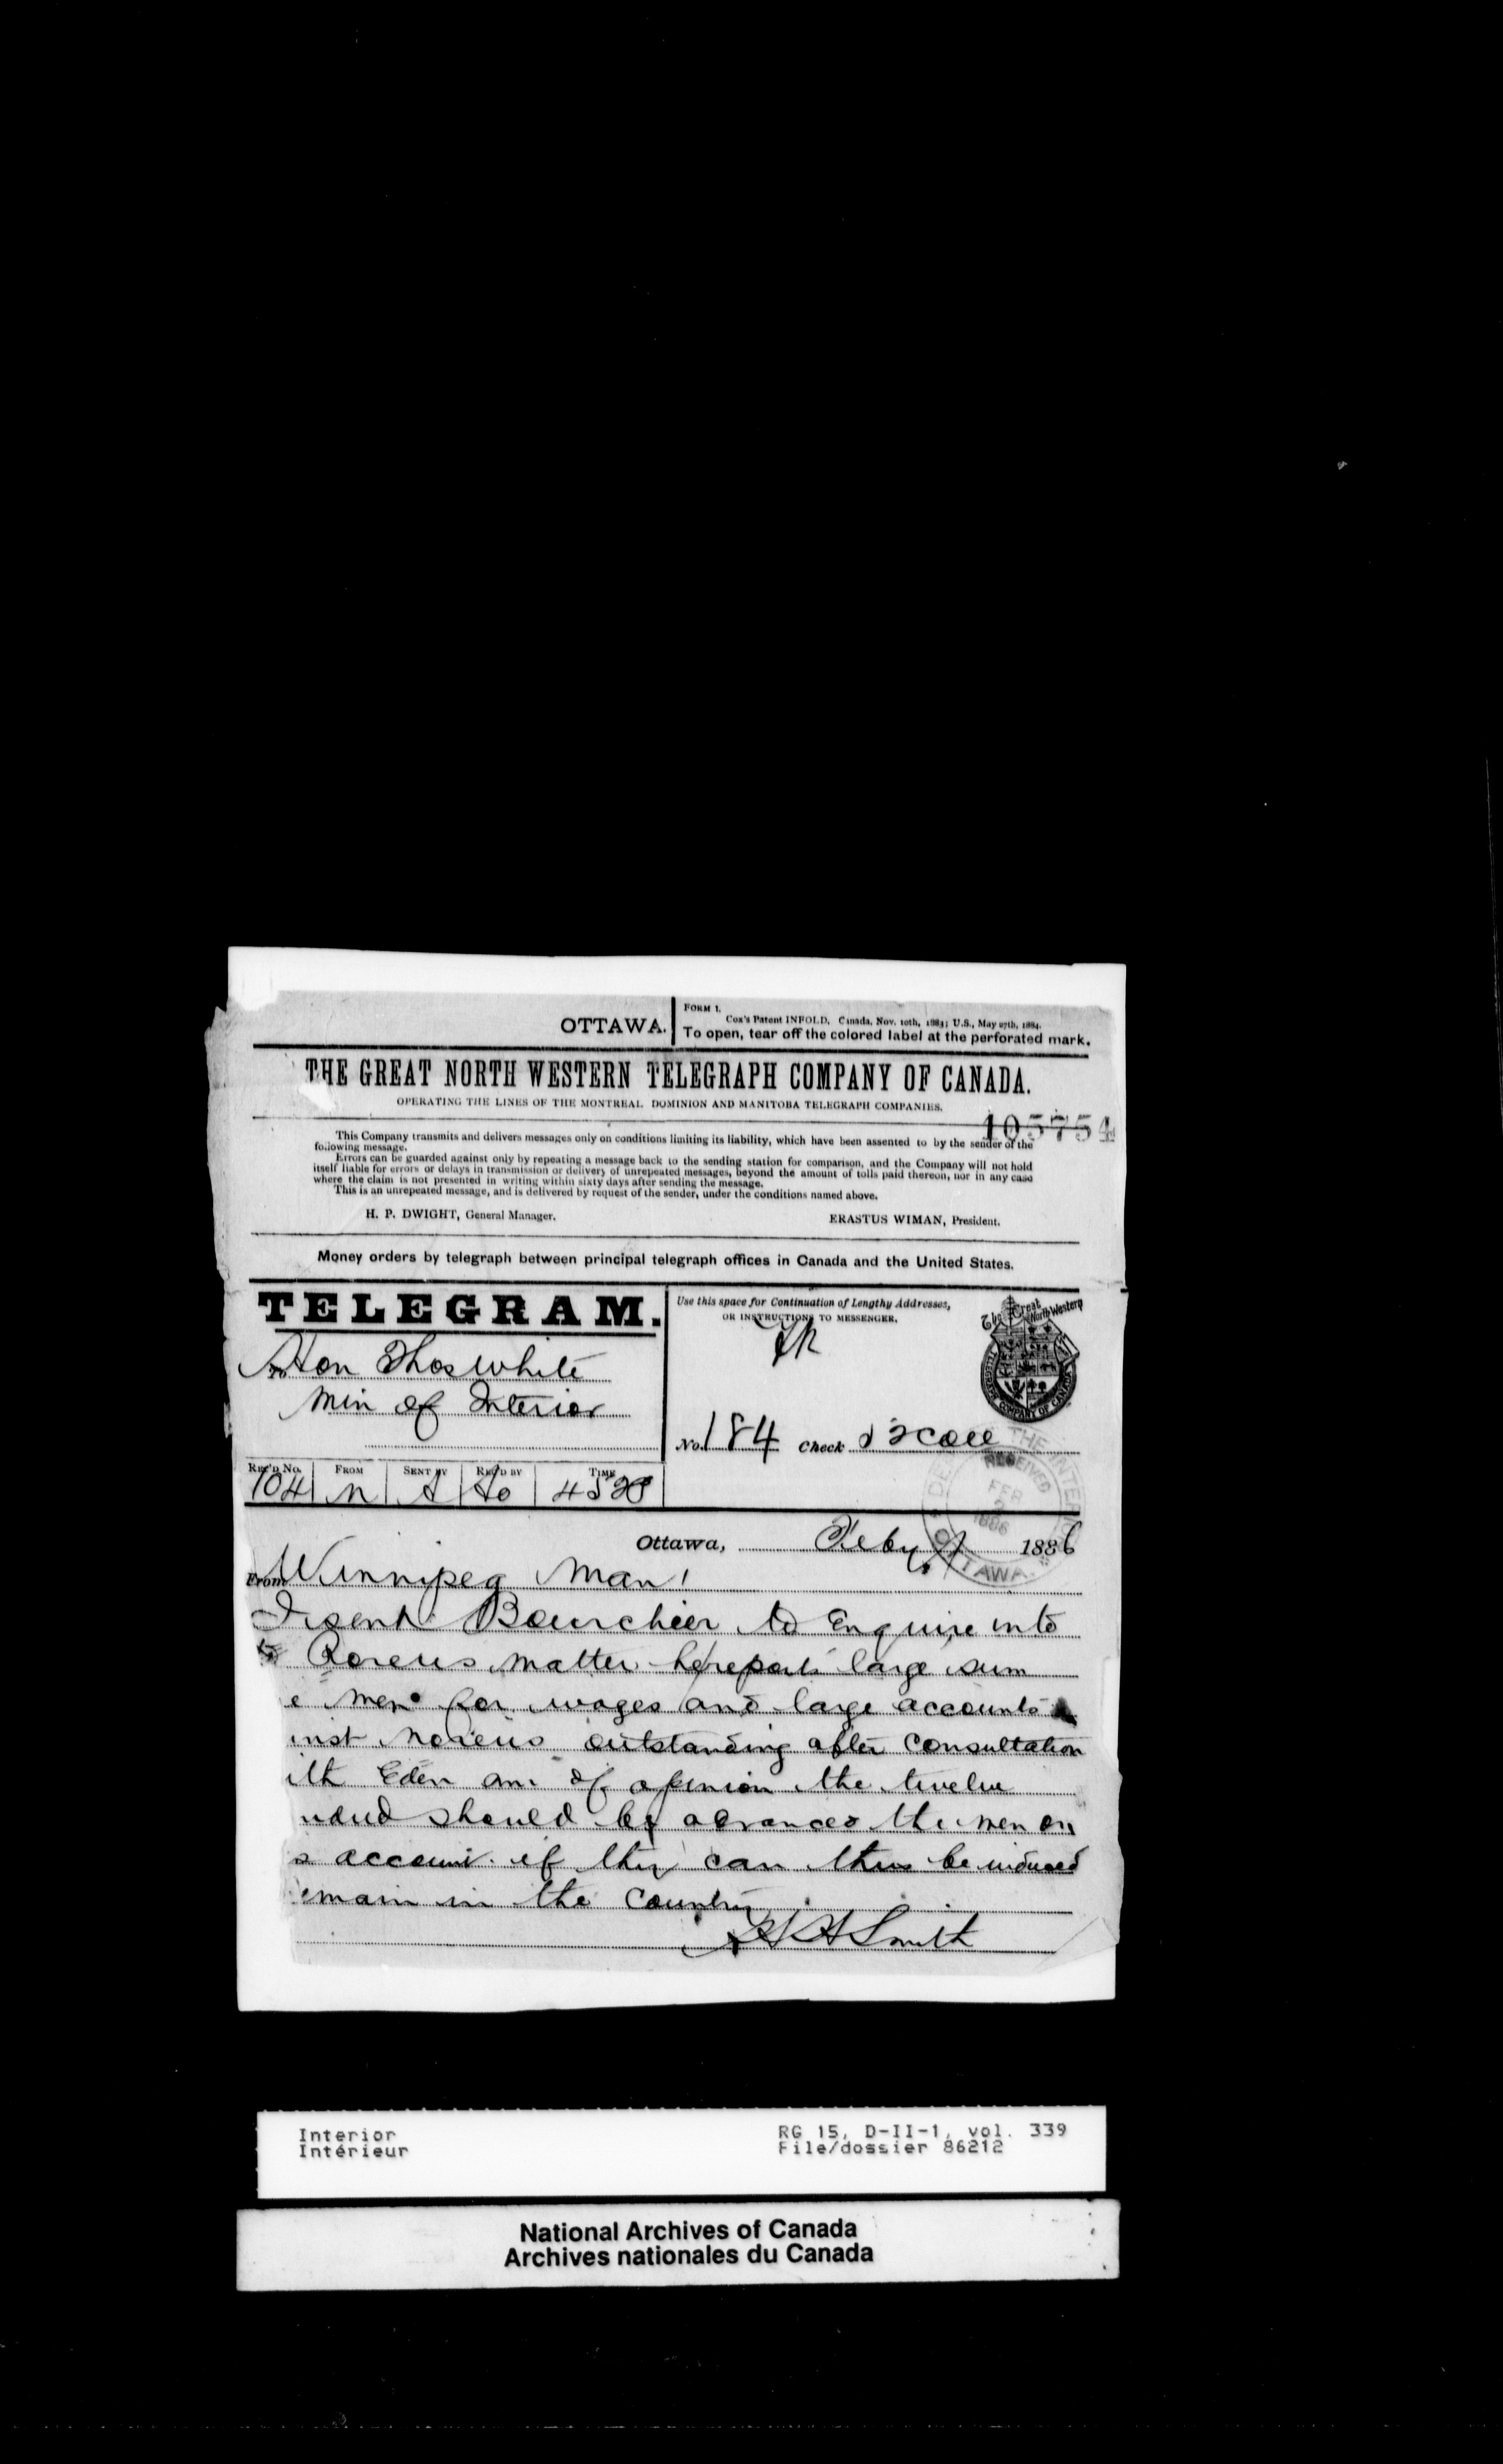 OTTAWA.
FORM 1.
Cox's Patent INFOLD, Canada, Nov. 10th, 1883; U.S., May 27th, 1884.
To open, tear off the colored label at the perforated mark.
THE GREAT NORTH WESTERN TELEGRAPH COMPANY OF CANADA.
OPERATING THE LINES OF THE MONTREAL, DOMINION AND MANITOBA TELEGRAPH COMPANIES.
105754
This Company transmits and delivers messages only on conditions limiting its liability, which have been assented to by the sender of the
following message.
Errors can be guarded against only by repeating a message back to the sending station for comparison, and the Company will not hold
itself liable for errors or delays in transmission or delivery of unrepeated messages, beyond the amount of tolls paid thereon, nor in any case
where the claim is not presented in writing within sixty days after sending the message.
This is an unrepeated message, and is delivered by request of the sender, under the conditions named above.
H. P. DWIGHT, General Manager.
ERASTUS WIMAN, President.
Money orders by telegraph between principal telegraph offices in Canada and the United States.
TELEGRAM.
Use this space for Continuation of Lengthy Addresses,
OR INSTRUCTIONS TO MESSENGER.
The Great North Western
TELEGRAPH COMPANY OF CANADA
To Hon Thos White
Min of Interior
No. 184 Check
REC'D No. FROM SENT BY REC'D BY TIME
104
RECEIVED
FEB
2
1886
THE INTERIOR
OTTAWA
Ottawa, Feby 1886
From Winnipeg Man
I sent Bourchier to Enquire into
matter he reports large sum
e men for wages and large accounts
inst outstanding after consultation
ith Eden am of opinion the twelve
ndred should be advanced the men on
s account if they can thus be induced
emain in the Country
H H Smith
Interior
Intérieur
RG 15, D-II-1, vol. 339
File/dossier 86212
National Archives of Canada
Archives nationales du Canada